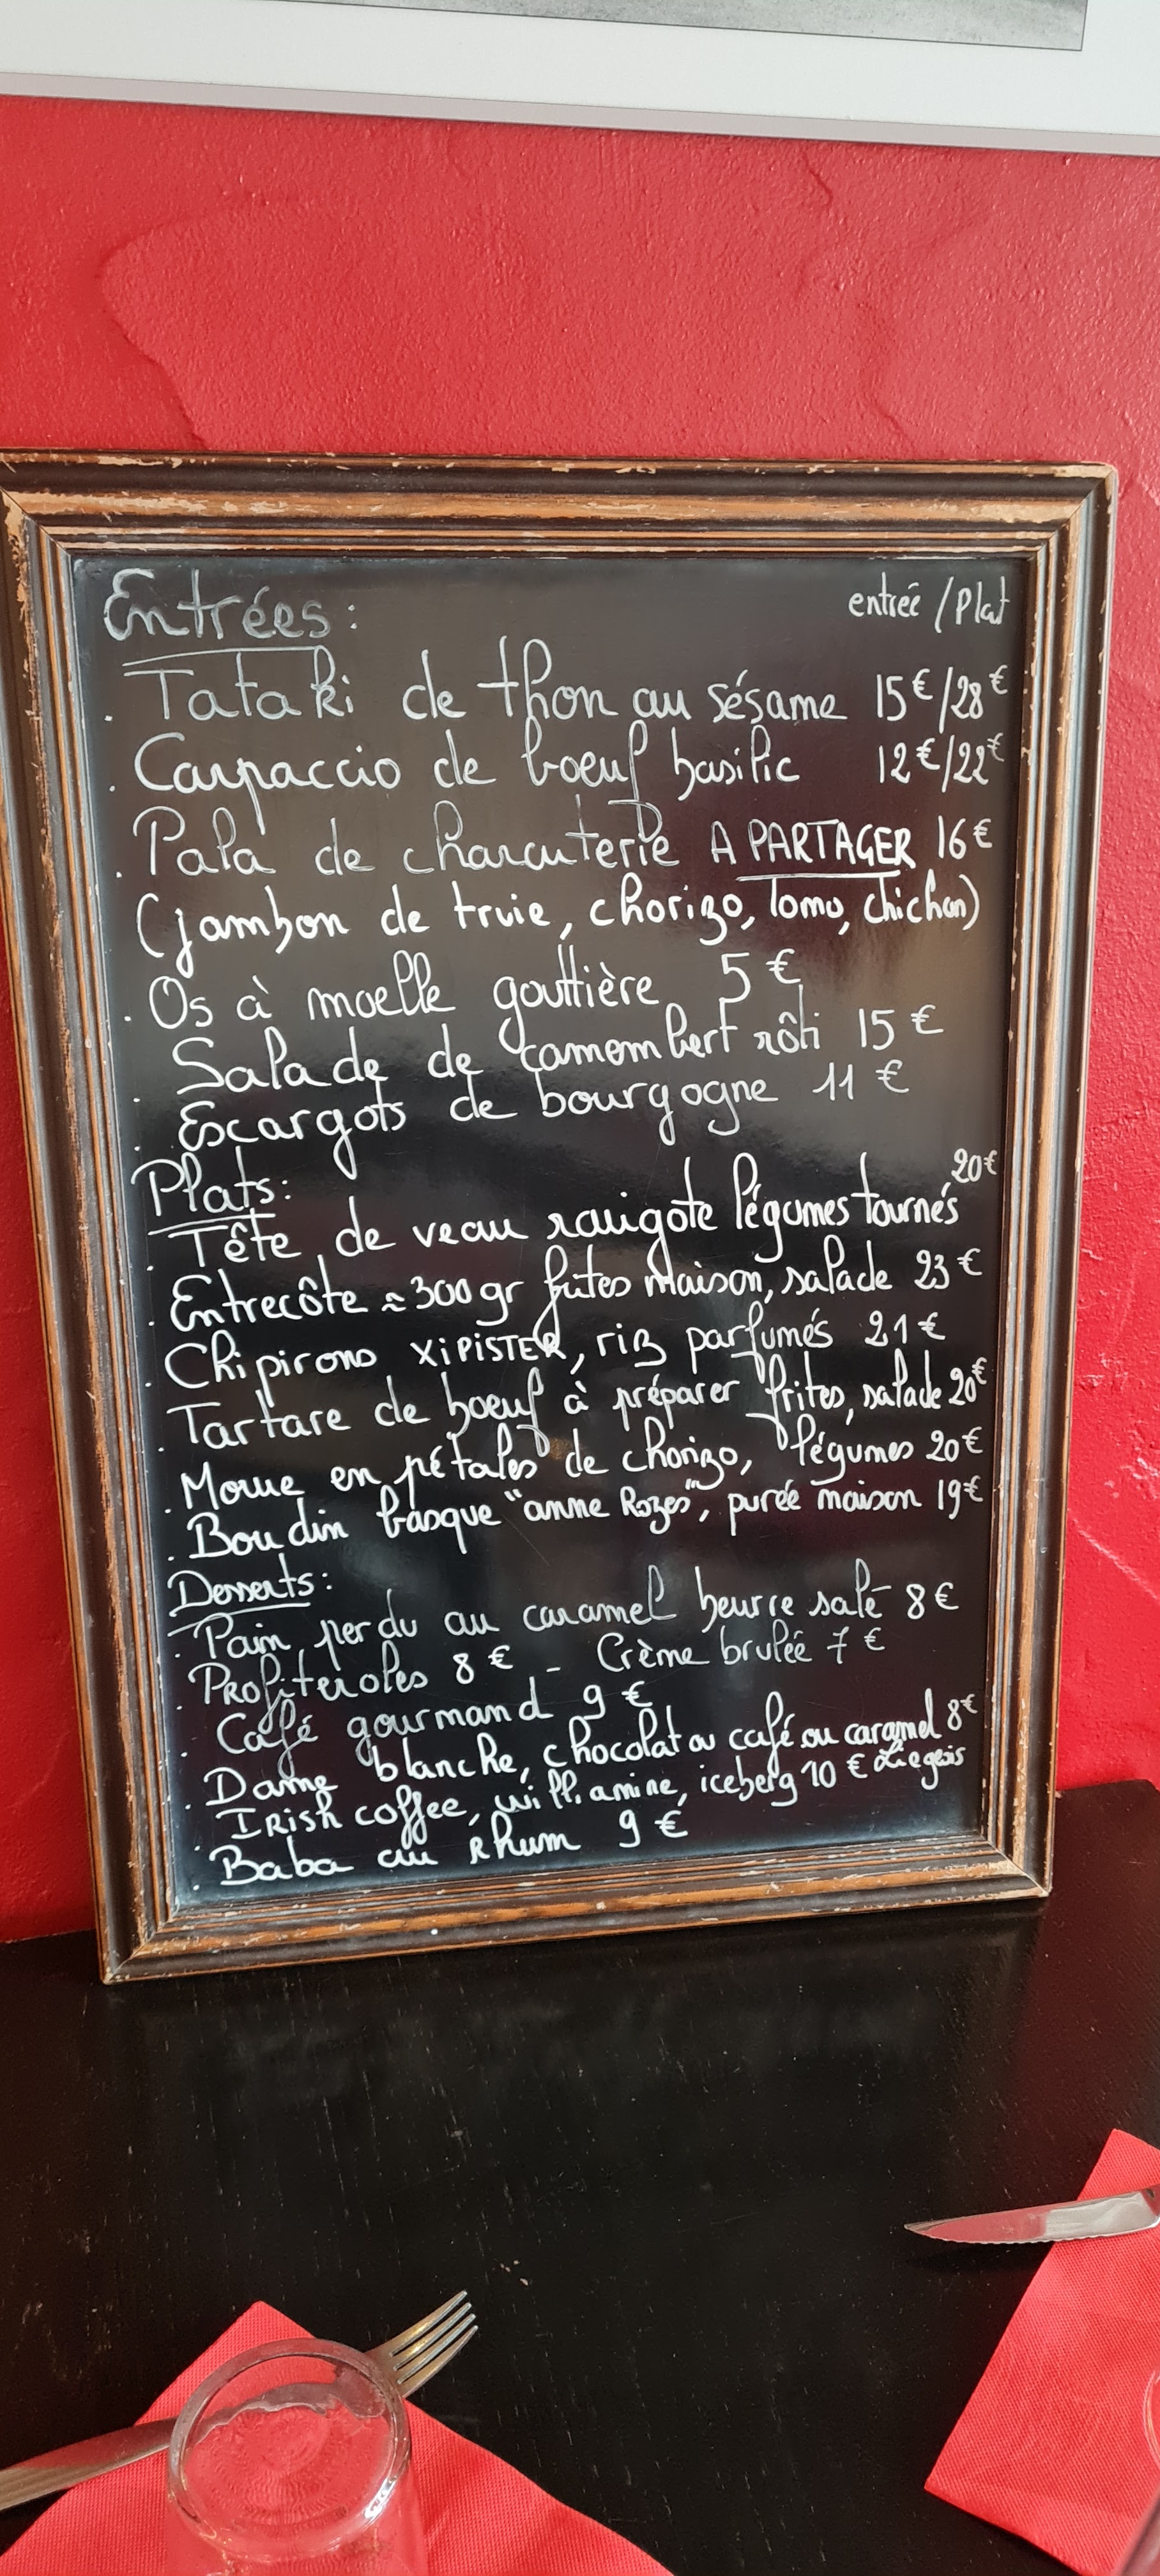 Entrées : entrée / Plat
. Tataki de thon au sésame 15€/28€
. Carpaccio de boeuf basilic 12€/22€
. Pala de charcuterie A PARTAGER 16€
(jambon de truie, chorizo, lomo, chichon)
. Os à moelle gouttière 5€
. Salade de camembert rôti 15€
. Escargots de bourgogne 11€
Plats :
. Tête de veau ravigote légumes tournés 20€
. Entrecôte ≈ 300gr frites maison, salade 23€
. Chipirons XiPiSTER, riz parfumés 21€
. Tartare de boeuf à préparer frites, salade 20€
. Morue en pétales de chorizo, légumes 20€
. Boudin basque "anne Rozes", purée maison 19€
Desserts :
. Pain perdu au caramel beurre salé 8€
. Profiteroles 8€ - Crème brulée 7€
. Café gourmand 9€
. Dame blanche, chocolat ou café ou caramel Liegeois 8€
. Irish coffee, williamine, iceberg 10€
. Baba au Rhum 9€